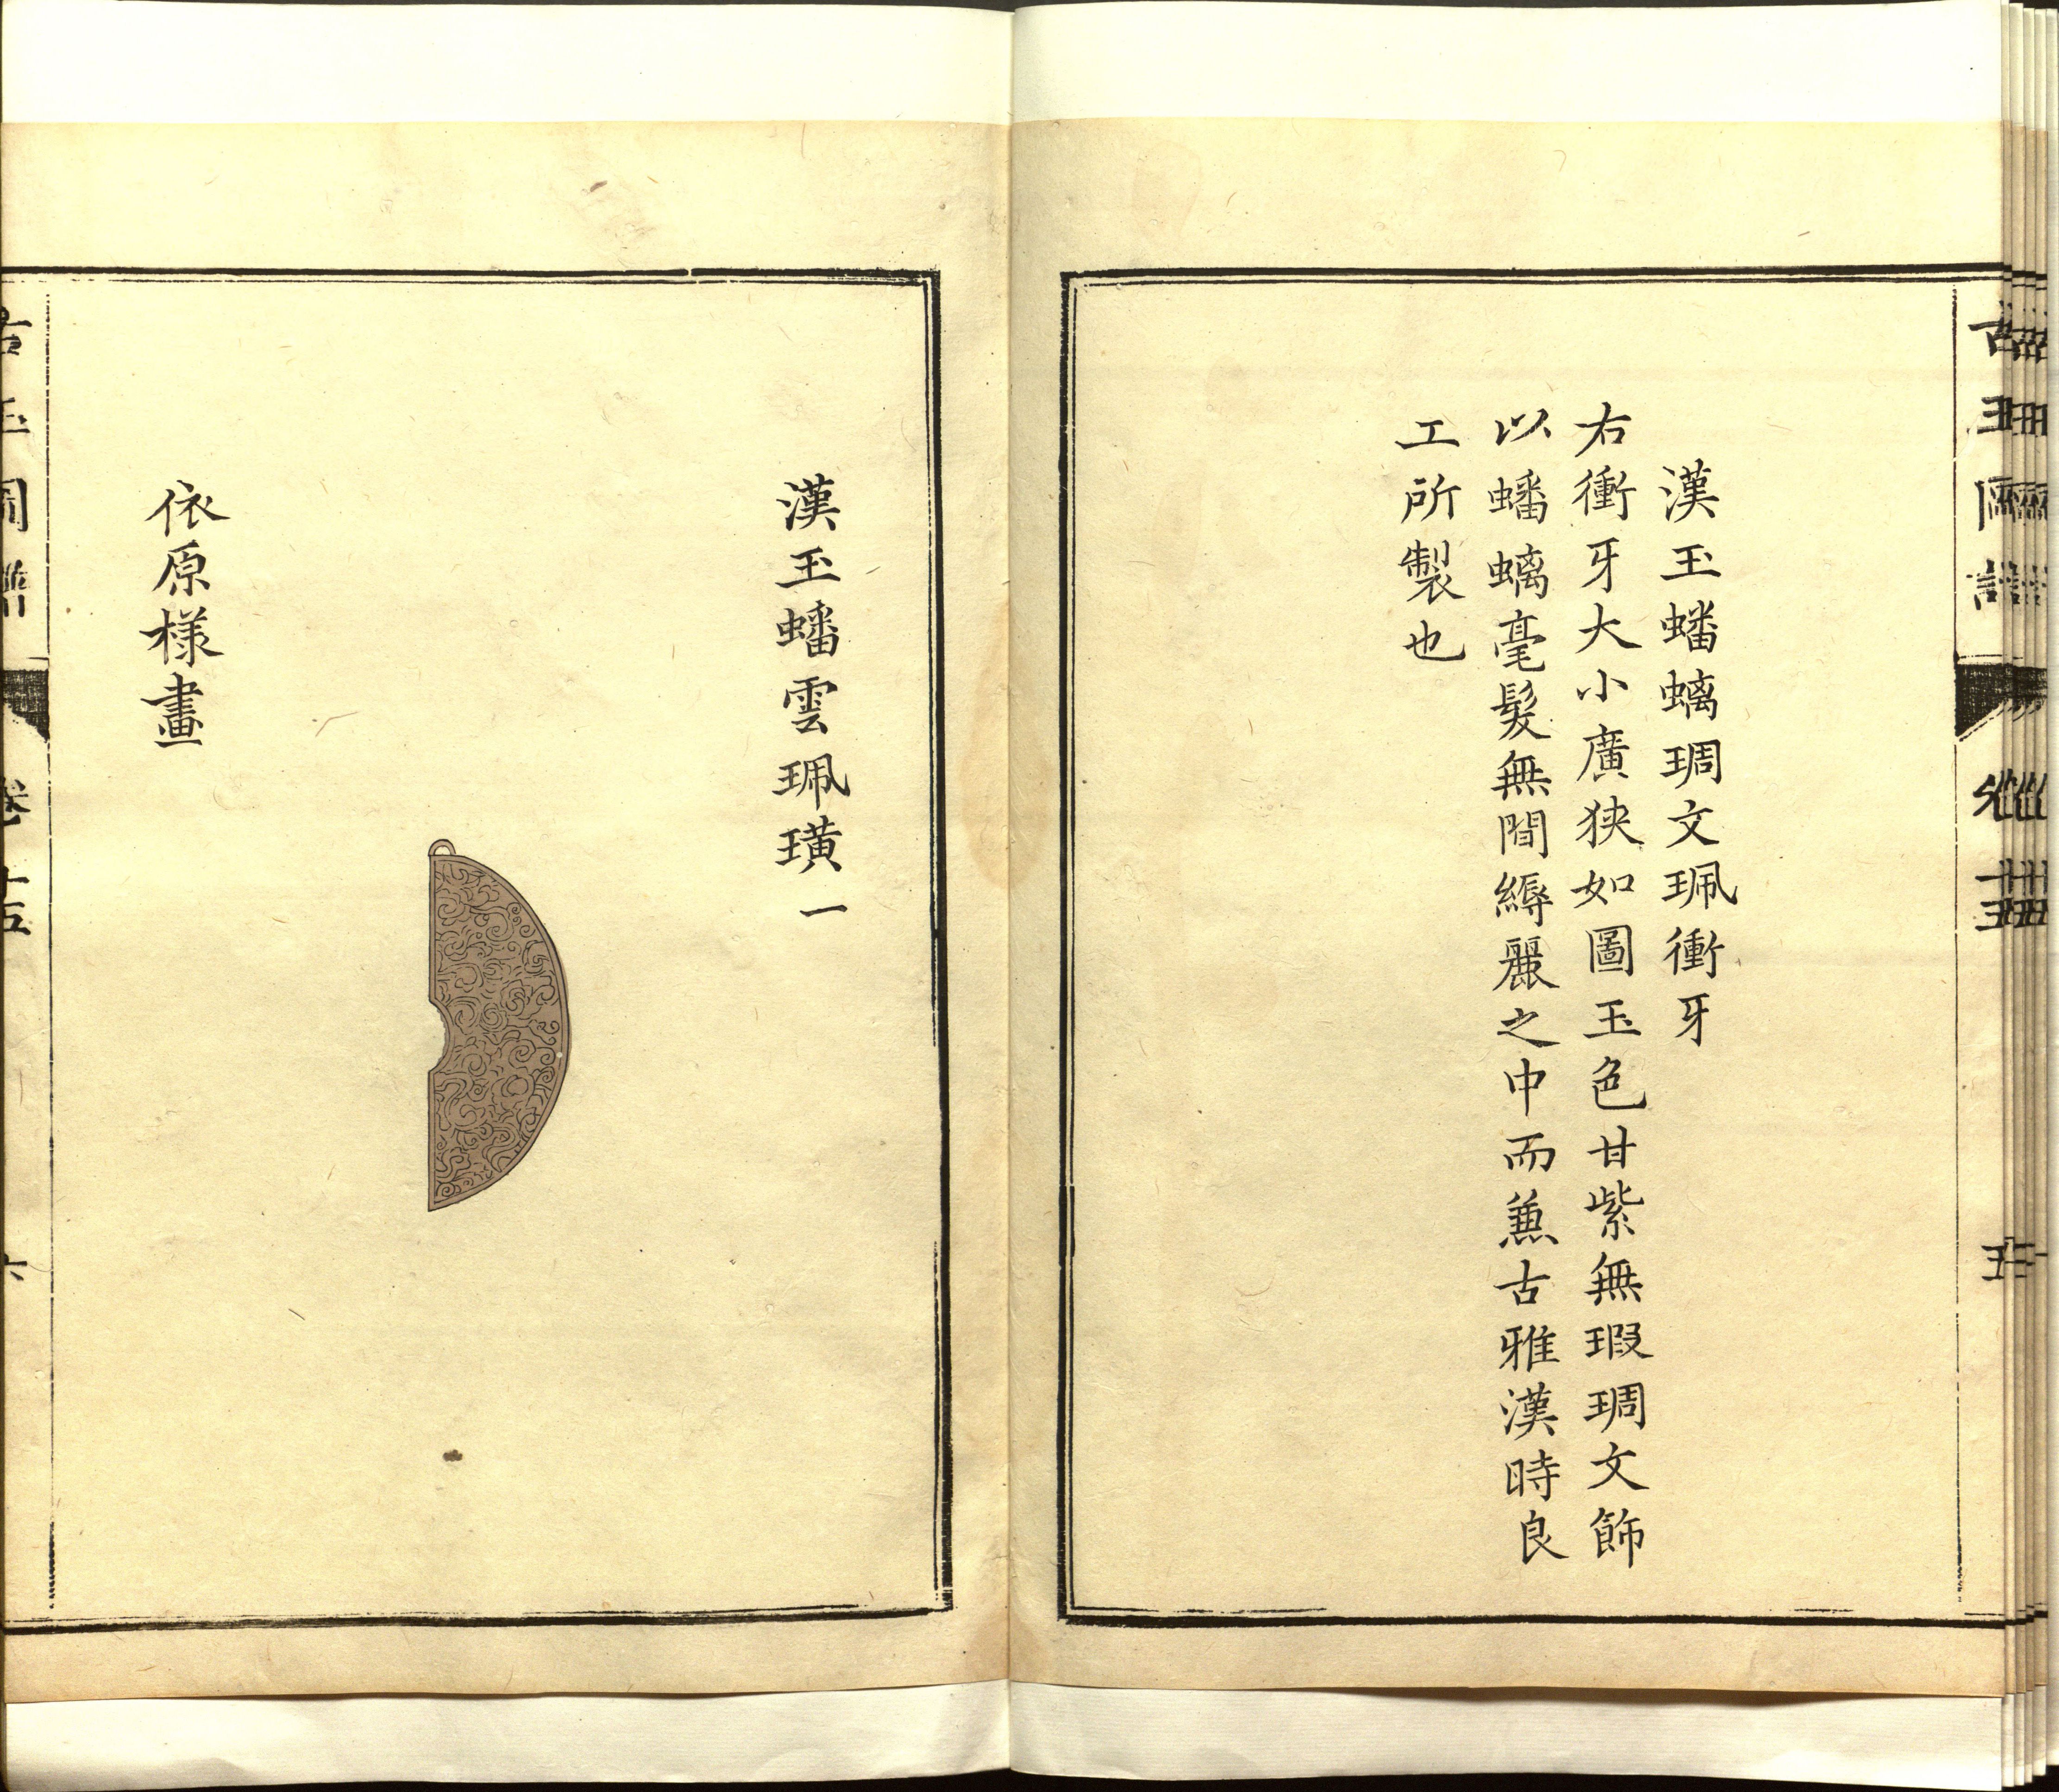 漢玉蟠螭琱文珮衝牙
右衝牙大小廣狹如圖玉色甘紫無瑕琱文飾
以蟠螭毫髮無間縟麗之中而兼古雅漢時良
工所製也
漢玉蟠雲珮璜一
依原樣畫
古玉圖譜 卷十五 六